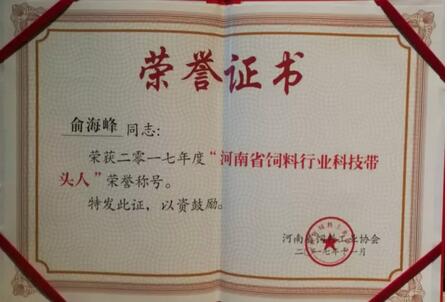 荣誉证书
俞海峰 同志：
荣获二零一七年度“河南省饲料行业科技带
头人”荣誉称号。
特发此证，以资鼓励。
河南省饲料工业协会
二〇一七年十一月